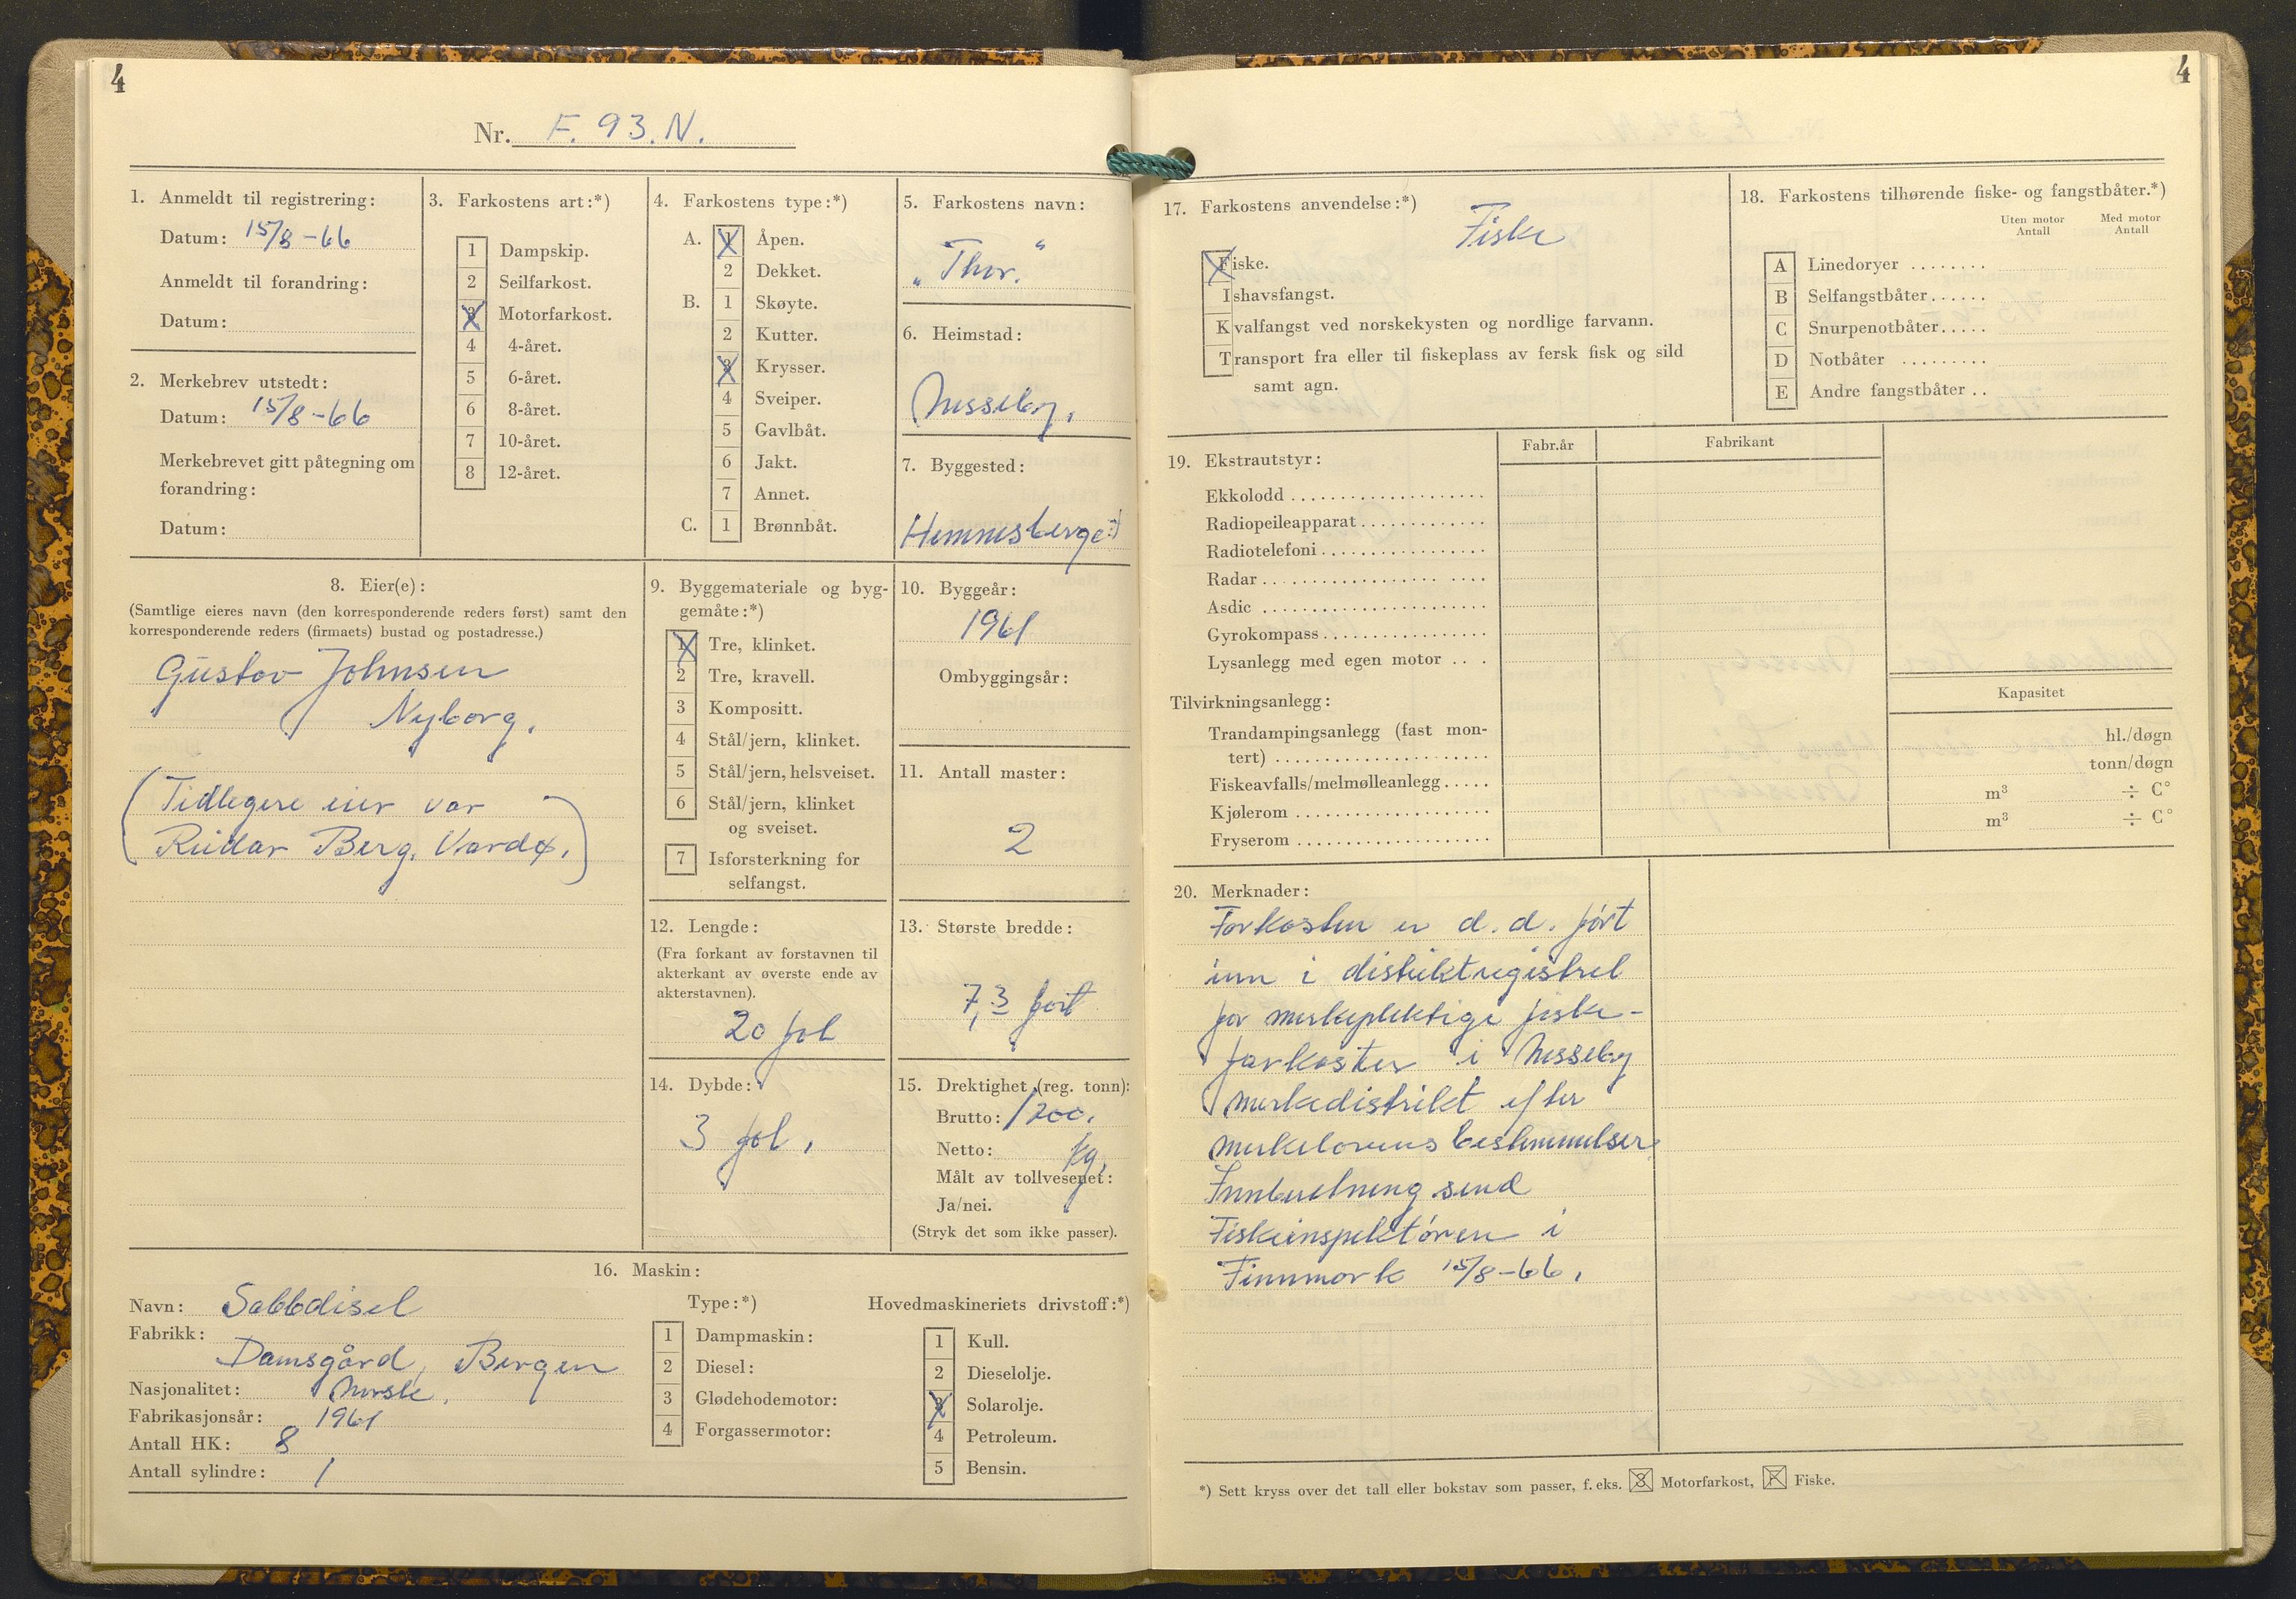 4
Nr. F. 93. N.
1. Anmeldt til registrering:
Datum: 15/8-66
Anmeldt til forandring:
Datum:
2. Merkebrev utstedt:
Datum: 15/8-66
Merkebrevet gitt påtegning om
forandring:
Datum:
3. Farkostens art:*)
1 Dampskip.
2 Seilfarkost.
3 Motorfarkost.
4 4-året.
5 6-året.
6 8-året.
7 10-året.
8 12-året.
4. Farkostens type:*)
A. 1 Åpen.
2 Dekket.
B. 1 Skøyte.
2 Kutter.
3 Krysser.
4 Sveiper.
5 Gavlbåt.
6 Jakt.
7 Annet.
C. 1 Brønnbåt.
5. Farkostens navn:
„Thor."
6. Heimstad:
Nesseby.
7. Byggested:
Hemnesberget
8. Eier(e):
(Samtlige eieres navn (den korresponderende reders først) samt den
korresponderende reders (firmaets) bustad og postadresse.)
Gustav Johnsen
Nyborg.
(Tidligere eier var
Reidar Berg, Vardø.)
9. Byggemateriale og byg-
gemåte:*)
1 Tre, klinket.
2 Tre, kravell.
3 Kompositt.
4 Stål/jern, klinket.
5 Stål/jern, helsveiset.
6 Stål/jern, klinket
og sveiset.
7 Isforsterkning for
selfangst.
10. Byggeår:
1961
Ombyggingsår:
11. Antall master:
2
12. Lengde:
(Fra forkant av forstavnen til
akterkant av øverste ende av
akterstavnen).
20 fot
13. Største bredde:
7,3 fot
14. Dybde:
3 fot.
15. Drektighet (reg. tonn):
Brutto: 1200.
Netto: kg,
Målt av tollvesenet:
Ja/nei.
(Stryk det som ikke passer).
16. Maskin:
Navn: Sabbdisel
Fabrikk:
Damsgård, Bergen
Nasjonalitet: Norsk.
Fabrikasjonsår: 1961
Antall HK: 8
Antall sylindre: 1
Type:*)
1 Dampmaskin:
2 Diesel:
3 Glødehodemotor:
4 Forgassermotor:
Hovedmaskineriets drivstoff:*)
1 Kull.
2 Dieselolje.
3 Solarolje.
4 Petroleum.
5 Bensin.
4
17. Farkostens anvendelse:*)
Fiske
Fiske.
Ishavsfangst.
Kvalfangst ved norskekysten og nordlige farvann.
Transport fra eller til fiskeplass av fersk fisk og sild
samt agn.
18. Farkostens tilhørende fiske- og fangstbåter.*)
Uten motor Med motor
Antall Antall
A Linedoryer ........
B Selfangstbåter......
C Snurpenotbåter.....
D Notbåter .........
E Andre fangstbåter ..
19. Ekstrautstyr:
Fabr.år Fabrikant
Ekkolodd ....................
Radiopeileapparat.............
Radiotelefoni.................
Radar.......................
Asdic .......................
Gyrokompass.................
Lysanlegg med egen motor ...
Tilvirkningsanlegg:
Kapasitet
Trandampingsanlegg (fast mon-
tert) ...................... hl./døgn
Fiskeavfalls/melmølleanlegg..... tonn/døgn
Kjølerom .................... m³ ÷ C°
Fryserom .................... m³ ÷ C°
20. Merknader:
Farkosten er d.d. ført
inn i distriktregistret
for merkepliktige fiske-
farkoster i Nesseby
merkedistrikt efter
merkelovens bestemmelser.
Innberetning send
Fiskeinspektøren i
Finnmark 15/8-66.
*) Sett kryss over det tall eller bokstav som passer, f. eks. 3 Motorfarkost, F Fiske.